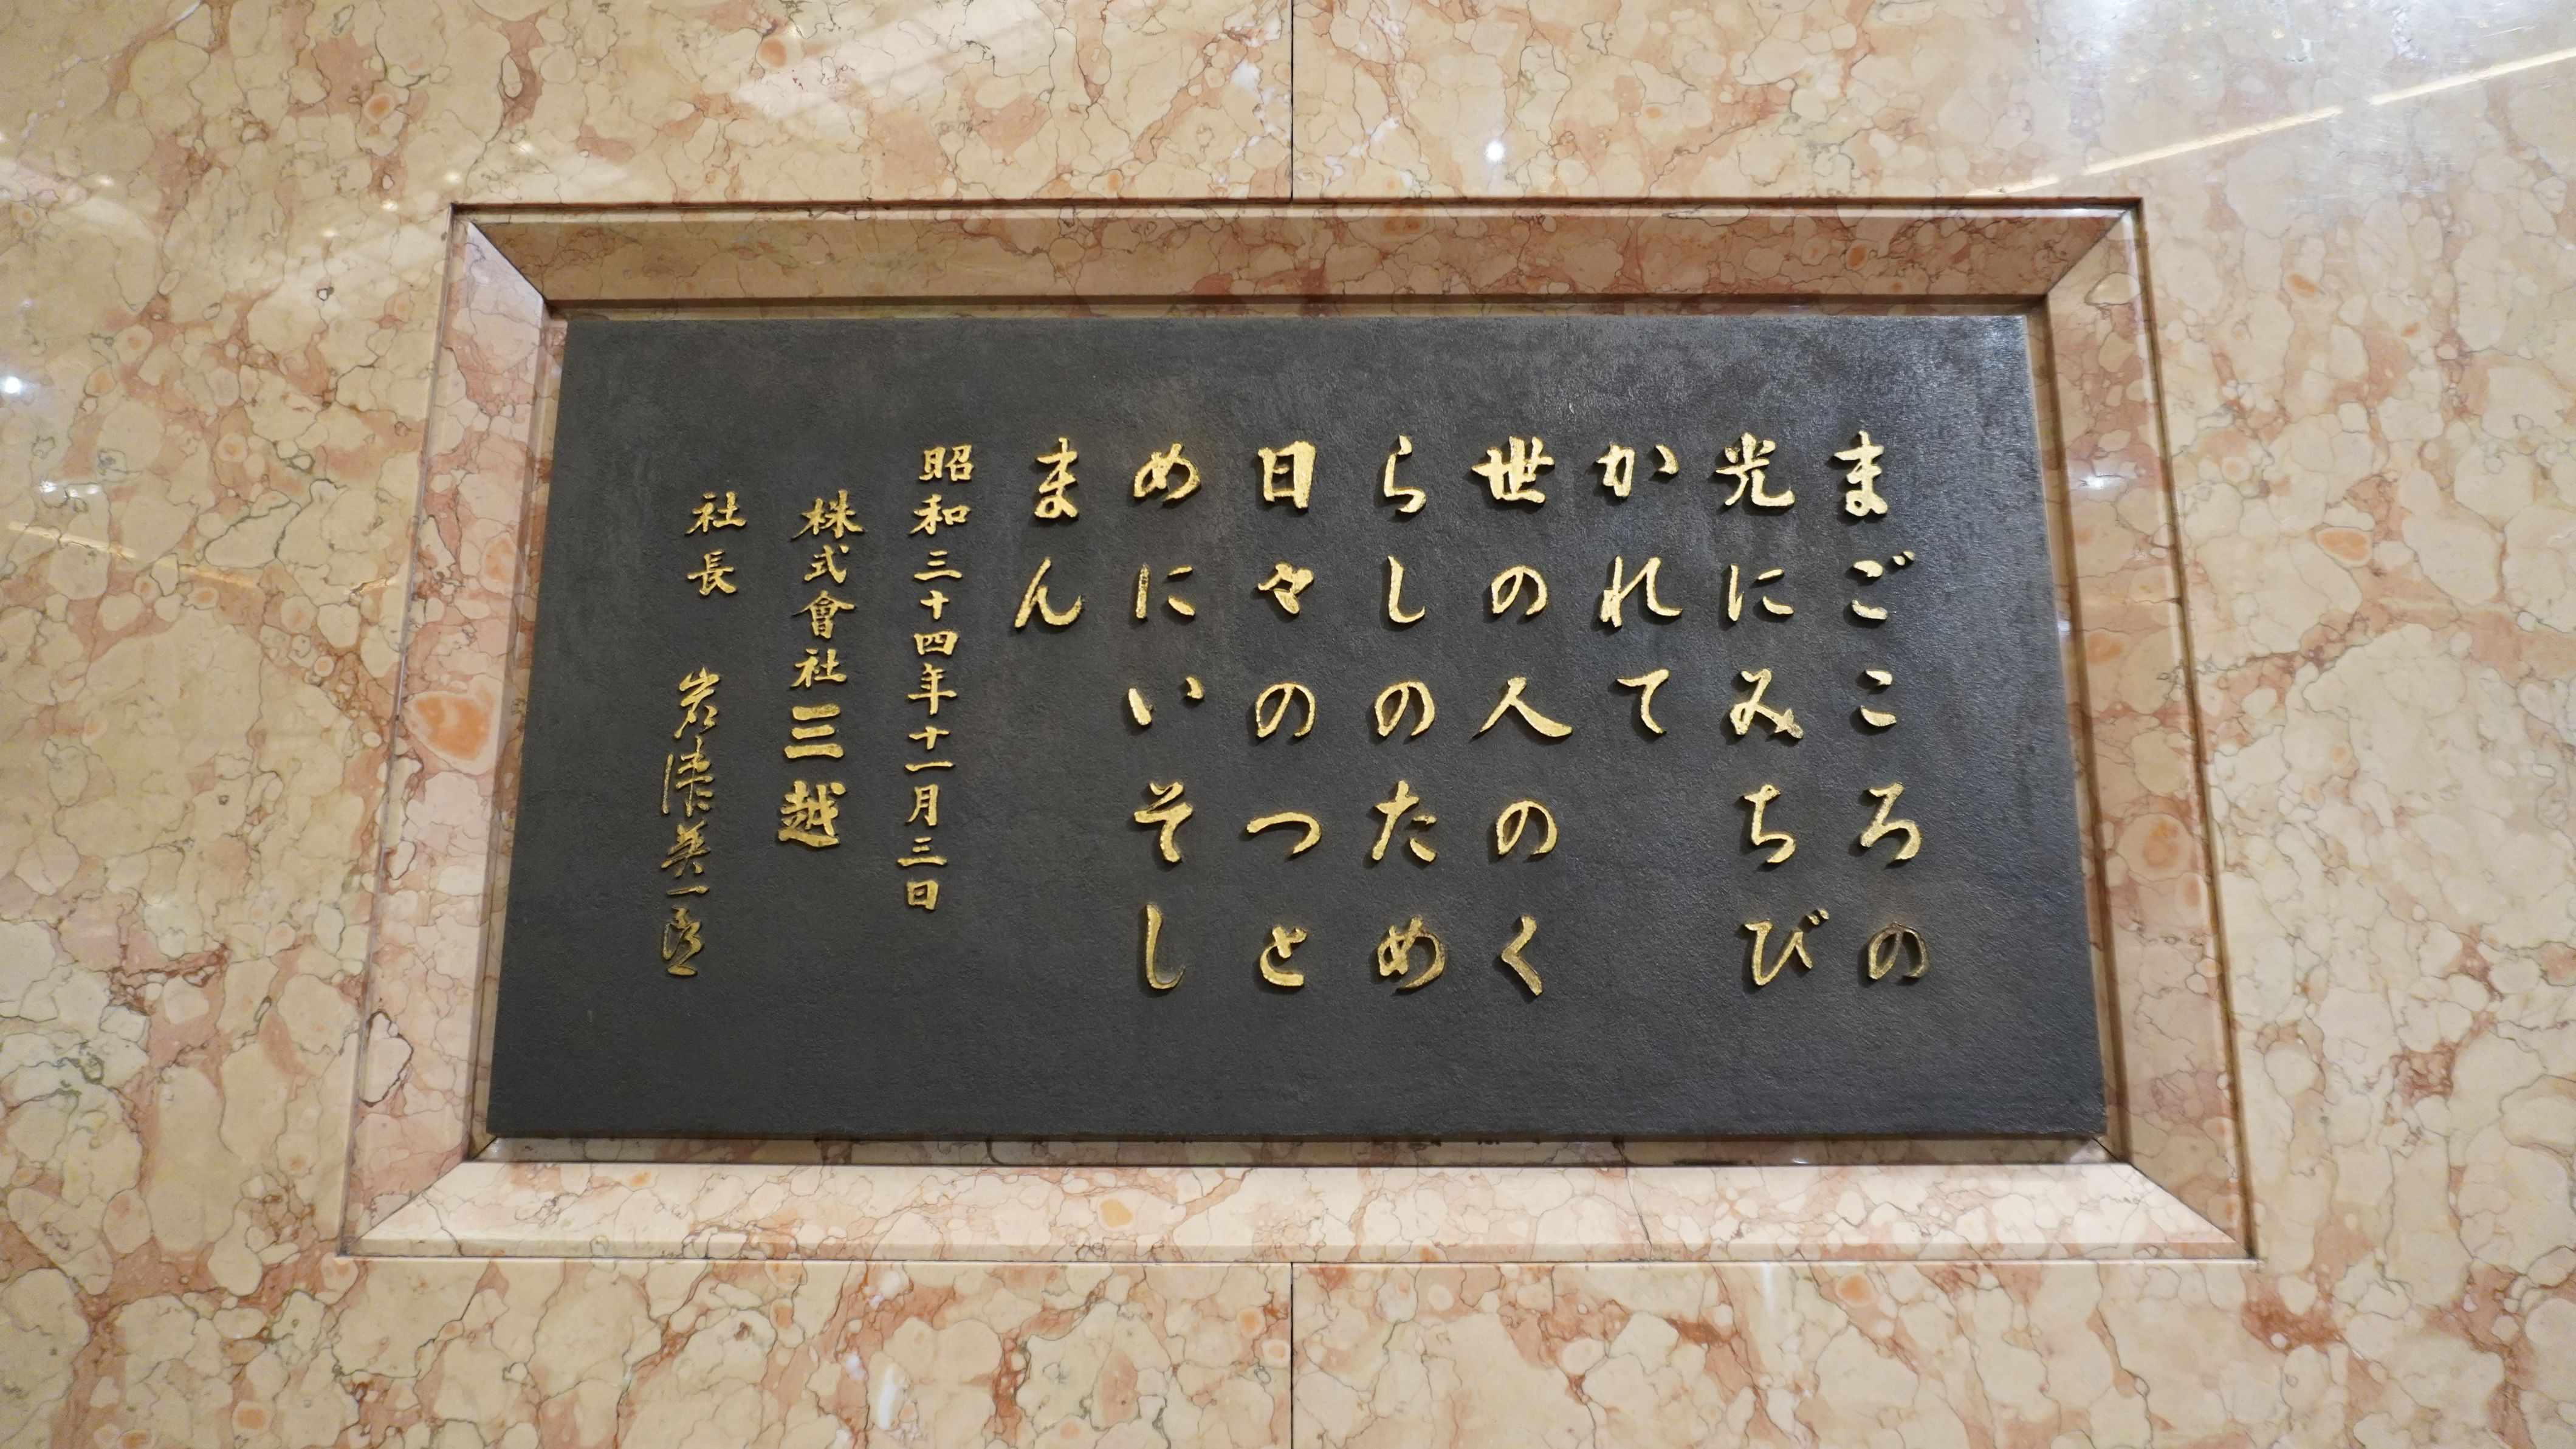 まごころの
光にみちび
かれて
世の人のく
らしのため
日々のつと
めにいそし
まん
昭和三十四年十一月三日
株式會社三越
社長 岩瀬英一郎